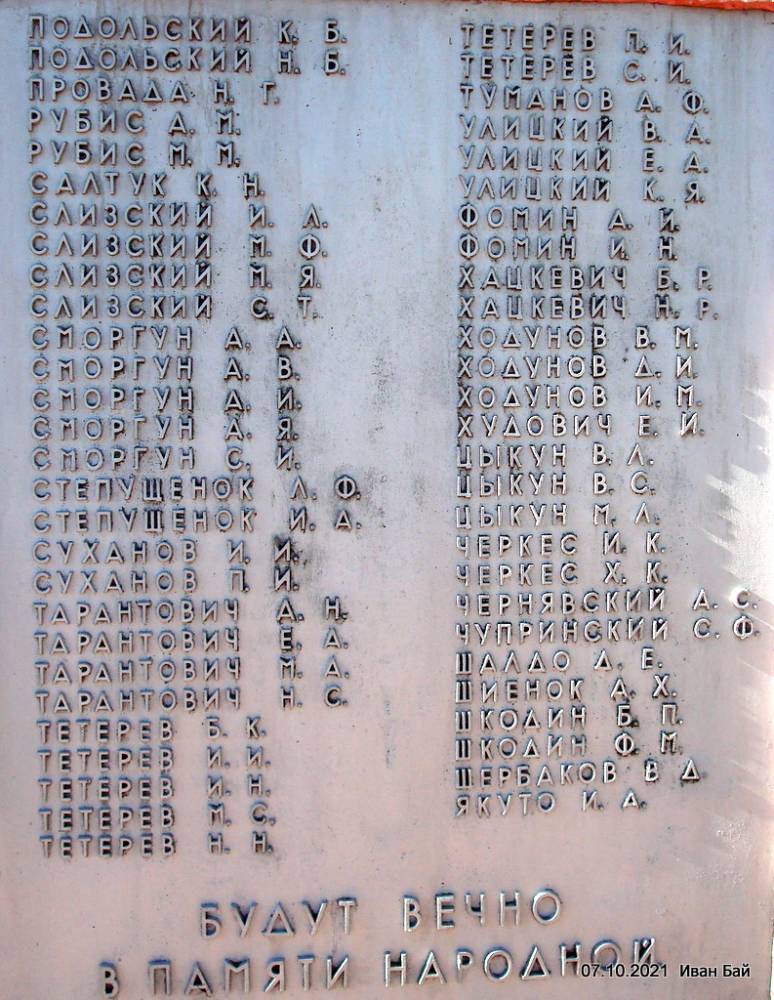 ПОДОЛЬСКИЙ К. Б.
ПОДОЛЬСКИЙ Н. Б.
ПРОВАДА Н. Г.
РУБИС Д. М.
РУБИС М. М.
САЛТУК К. Н.
СЛИЗСКИЙ И. Л.
СЛИЗСКИЙ М. Ф.
СЛИЗСКИЙ М. Я.
СЛИЗСКИЙ С. Т.
СМОРГУН А. А.
СМОРГУН А. В.
СМОРГУН Д. И.
СМОРГУН Д. Я.
СМОРГУН С. И.
СТЕПУЩЕНОК Л. Ф.
СТЕПУЩЕНОК И. Д.
СУХАНОВ И. И.
СУХАНОВ П. И.
ТАРАНТОВИЧ Д. Н.
ТАРАНТОВИЧ Е. Д.
ТАРАНТОВИЧ М. Д.
ТАРАНТОВИЧ Н. С.
ТЕТЕРЕВ Б. К.
ТЕТЕРЕВ И. И.
ТЕТЕРЕВ И. Н.
ТЕТЕРЕВ М. С.
ТЕТЕРЕВ Н. Н.
ТЕТЕРЕВ П. И.
ТЕТЕРЕВ С. И.
ТУМАНОВ А. Ф.
УЛИЦКИЙ В. Д.
УЛИЦКИЙ Е. Д.
УЛИЦКИЙ К. Я.
ФОМИН Д. И.
ФОМИН И. Н.
ХАЦКЕВИЧ Б. Р.
ХАЦКЕВИЧ Н. Р.
ХОДУНОВ В. М.
ХОДУНОВ Д. И.
ХОДУНОВ И. М.
ХУДОВИЧ Е. И.
ЦЫКУН В. Л.
ЦЫКУН В. С.
ЦЫКУН М. Л.
ЧЕРКЕС И. К.
ЧЕРКЕС Х. К.
ЧЕРНЯВСКИЙ А. С.
ЧУПРИНСКИЙ С. Ф.
ШАЛДО Д. Е.
ШИЕНОК А. Х.
ШКОДИН Б. П.
ШКОДИН Ф. М.
ЩЕРБАКОВ В Д.
ЯКУТО И. Д.
БУДУТ ВЕЧНО
В ПАМЯТИ НАРОДНОЙ
07.10.2021 Иван Бай